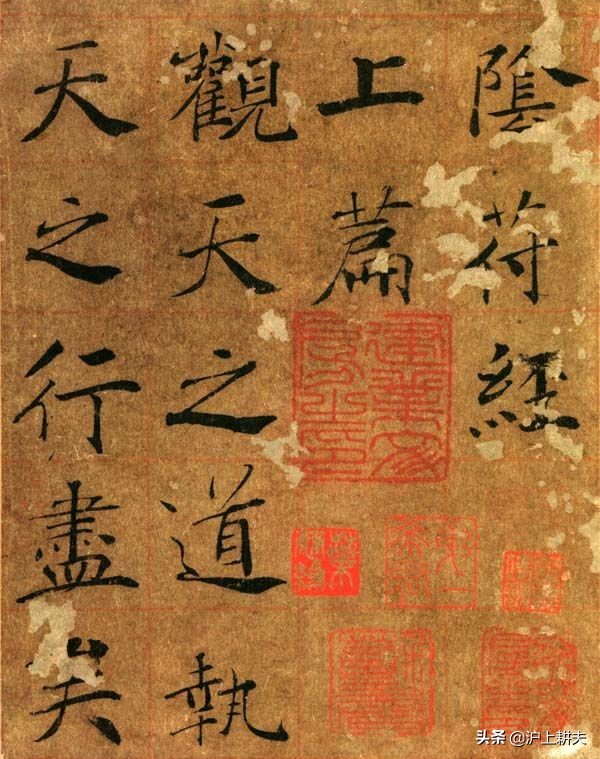 陰符經
上篇
觀天之道執
天之行盡矣
头条@沪上耕夫